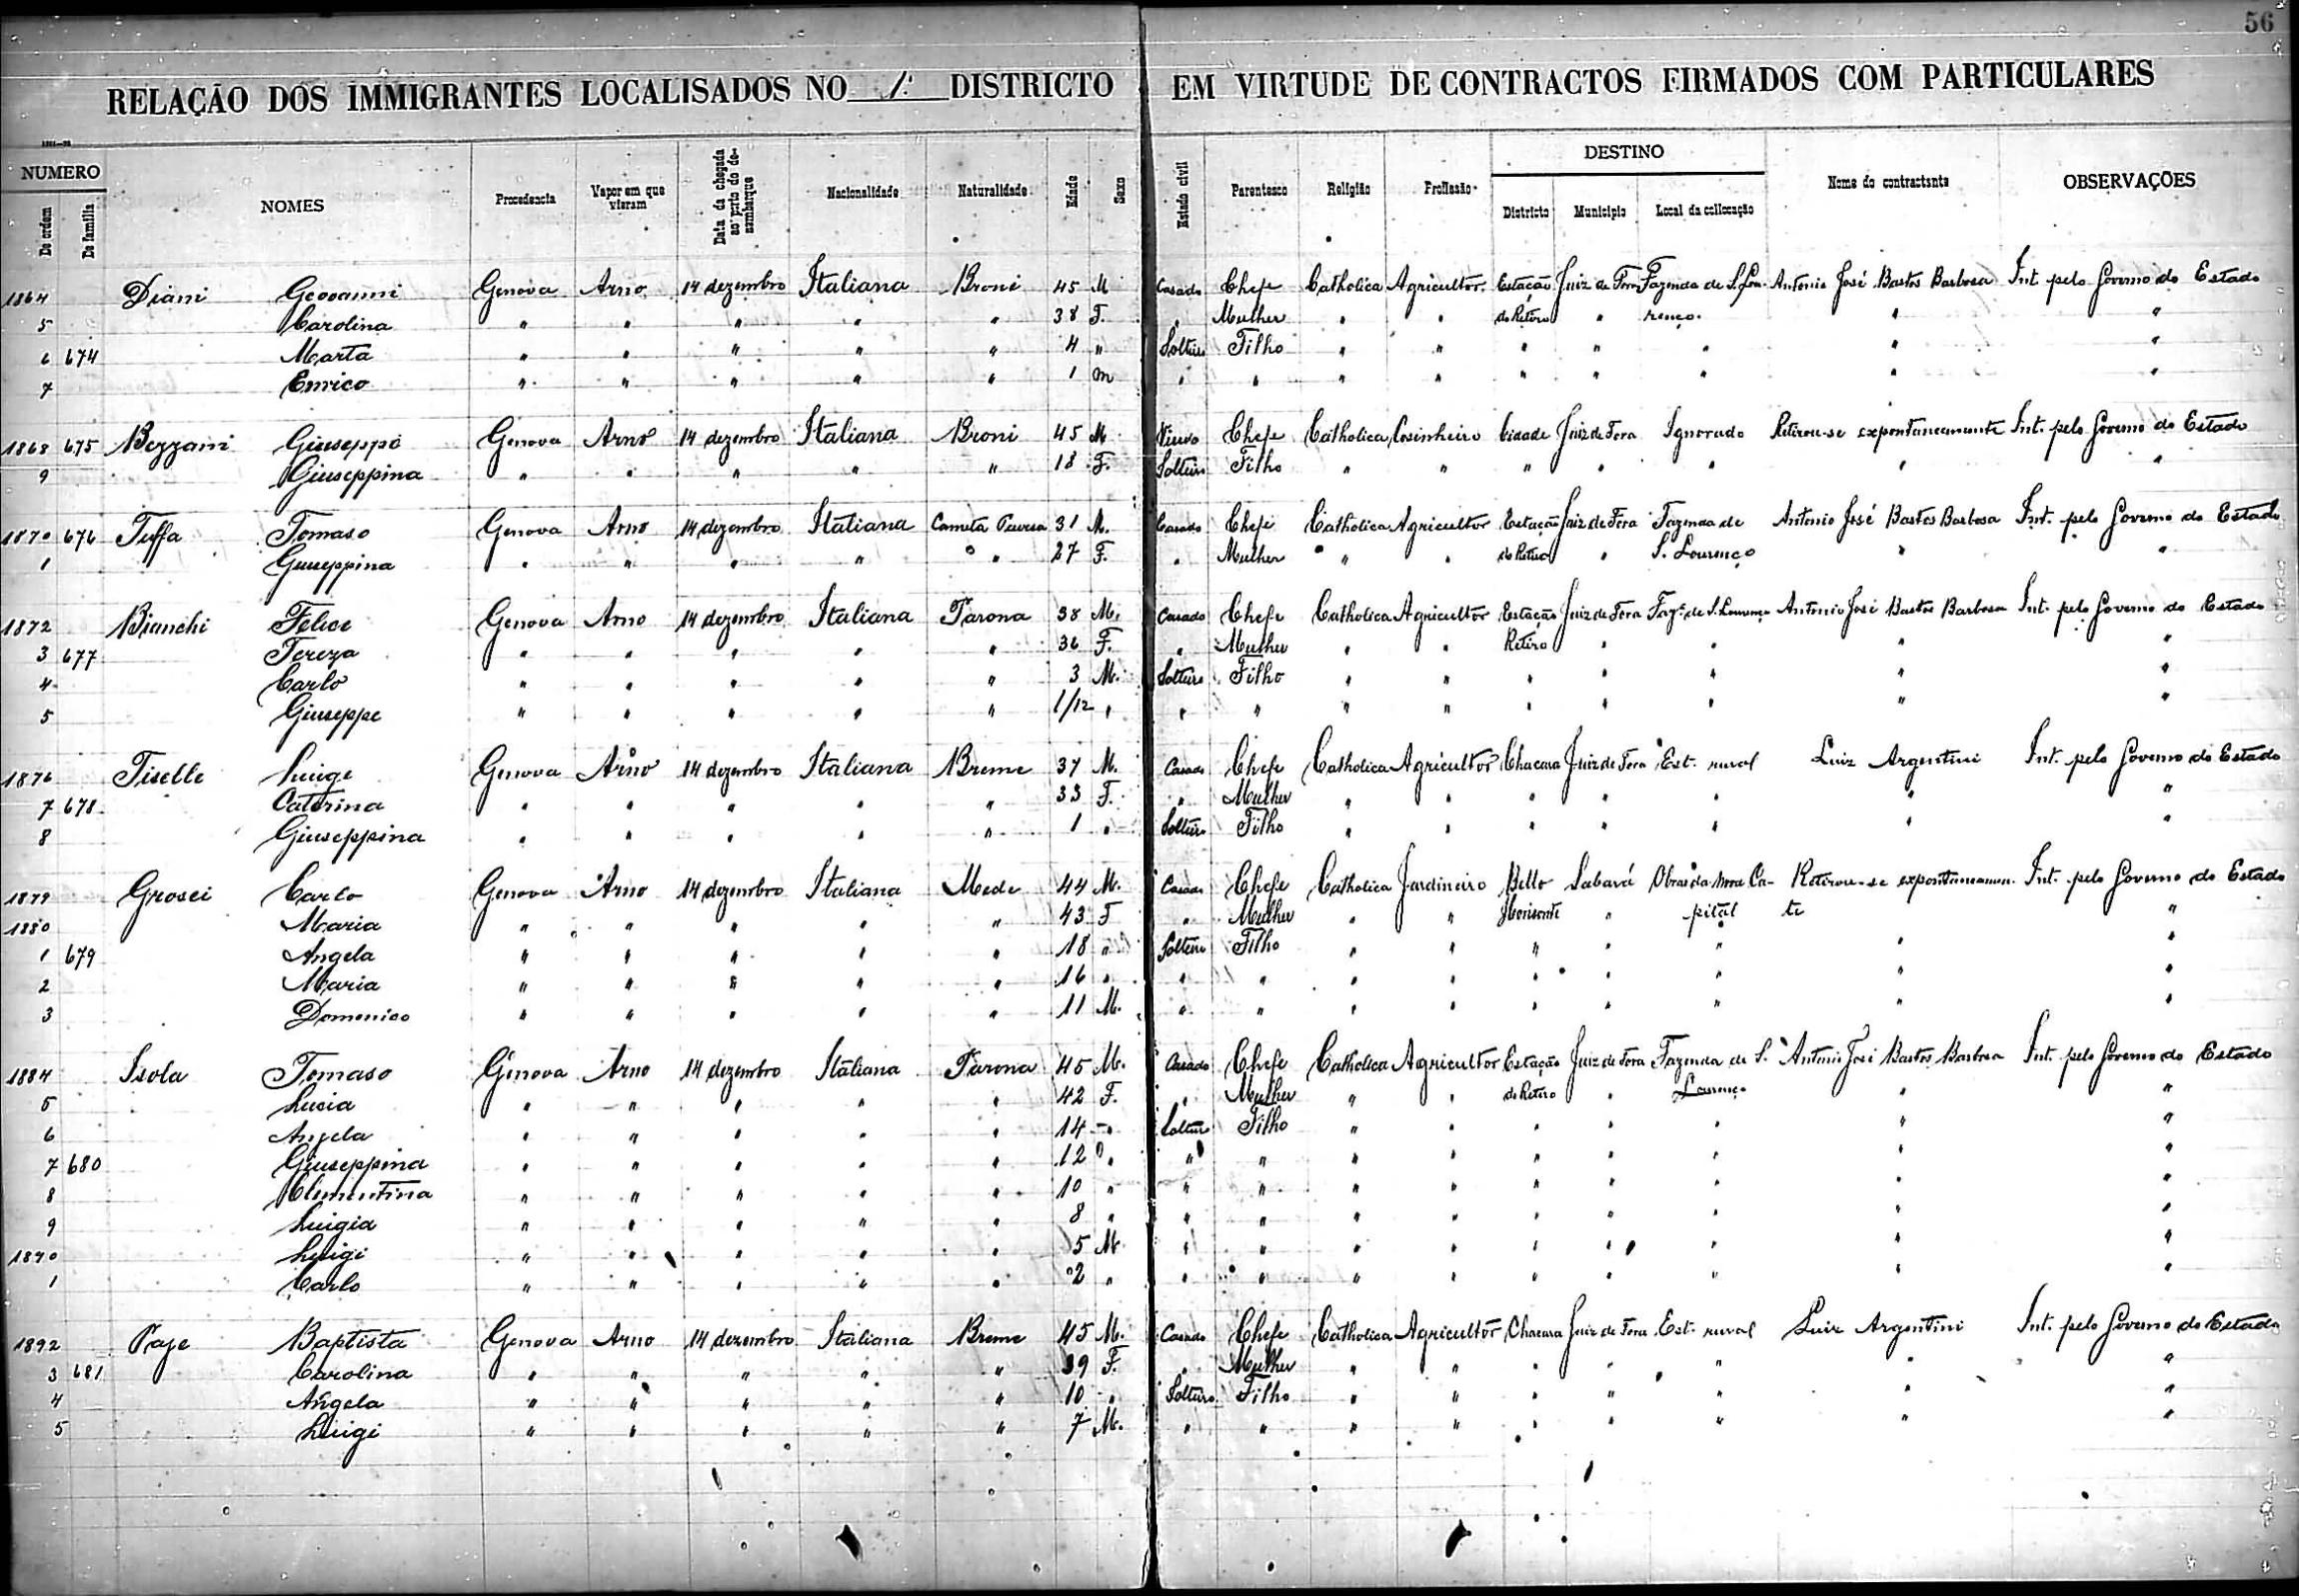 56
RELAÇÃO DOS IMMIGRANTES LOCALISADOS NO 1º DISTRICTO EM VIRTUDE DE CONTRACTOS FIRMADOS COM PARTICULARES
NUMERO
De ordem De familia NOMES Procedencia Vapor em que vieram Data da chegada ao porto do desembarque Nacionalidade Naturalidade Edade Sexo Estado civil Parentesco Religião Profissão DESTINO Districto Municipio Local da collocação Nome do contractante OBSERVAÇÕES
1864 Diani Geovanni Genova Arno 14 dezembro Italiana Broni 45 M Casado Chefe Catholica Agricultor Estação Juiz de Fora Fazenda de S. Lou- Antonio José Bastos Barbosa Int. pelo Governo do Estado
5 Carolina " " " " " 38 F. " Mulher " " do Retiro " renço. " "
6 674 Marta " " " " " 4 " Solteiro Filho " " " " " " "
7 Enrico " " " " " 1 m " " " " " " " " "
1868 675 Bezzani Giuseppe Genova Arno 14 dezembro Italiana Broni 45 M Viuvo Chefe Catholica Cosinheiro Cidade Juiz de Fora Ignorado Retirou-se expontaneamente Int. pelo Governo do Estado
9 Giuseppina " " " " " 18 F. Solteiro Filho " " " " " " "
1870 676 Tuffa Tomaso Genova Arno 14 dezembro Italiana 31 M. Casado Chefe Catholica Agricultor Estação Juiz de Fora Fazenda de Antonio José Bastos Barbosa Int. pelo Governo do Estado
1 Giuseppina " " " " " 27 F. " Mulher " " do Retiro " S. Lourenço " "
1872 Bianchi Felice Genova Arno 14 dezembro Italiana Parona 38 M. Casado Chefe Catholica Agricultor Estação Juiz de Fora Fazª de S. Lourenço Antonio José Bastos Barbosa Int. pelo Governo do Estado
3 677 Tereza " " " " " 36 F. " Mulher " " Retiro " " " "
4 Carlo " " " " " 3 M. Solteiro Filho " " " " " " "
5 Giuseppe " " " " " 1/12 " " " " " " " " " "
1876 Tiselle Luige Genova Arno 14 dezembro Italiana Breme 37 M. Casado Chefe Catholica Agricultor Chacara Juiz de Fora Est. rural Luiz Argentini Int. pelo Governo do Estado
7 678 Caterina " " " " " 33 F. " Mulher " " " " " " "
8 Giuseppina " " " " " 1 " Solteiro Filho " " " " " " "
1879 Grosei Carlo Genova Arno 14 dezembro Italiana Mede 44 M. Casado Chefe Catholica Jardineiro Bello Sabará Obras da Nova Ca- Retirou-se expontaneamen- Int. pelo Governo do Estado
1880 Maria " " " " " 43 F " Mulher " " Horisonte " pital te "
1 679 Angela " " " " " 18 " Solteiro Filho " " " " " " "
2 Maria " " " " " 16 " " " " " " " " " "
3 Domenico " " " " " 11 M. " " " " " " " " "
1884 Isola Tomaso Genova Arno 14 dezembro Italiana Parona 45 M. Casado Chefe Catholica Agricultor Estação Juiz de Fora Fazenda de S. Antonio José Bastos Barbosa Int. pelo Governo do Estado
5 Lucia " " " " " 42 F. " Mulher " " do Retiro " Lourenço " "
6 Angela " " " " " 14 " Solteiro Filho " " " " " " "
7 680 Giuseppina " " " " " 12 " " " " " " " " " "
8 Clementina " " " " " 10 " " " " " " " " " "
9 Luigia " " " " " 8 " " " " " " " " " "
1890 Luigi " " " " " 5 M " " " " " " " " "
1 Carlo " " " " " 2 " " " " " " " " " "
1892 Paje Baptista Genova Arno 14 dezembro Italiana Breme 45 M. Casado Chefe Catholica Agricultor Chacara Juiz de Fora Est. rural Luiz Argentini Int. pelo Governo do Estado
3 681 Carolina " " " " " 39 F. " Mulher " " " " " " "
4 Angela " " " " " 10 " Solteiro Filho " " " " " " "
5 Luigi " " " " " 7 M. " " " " " " " " "